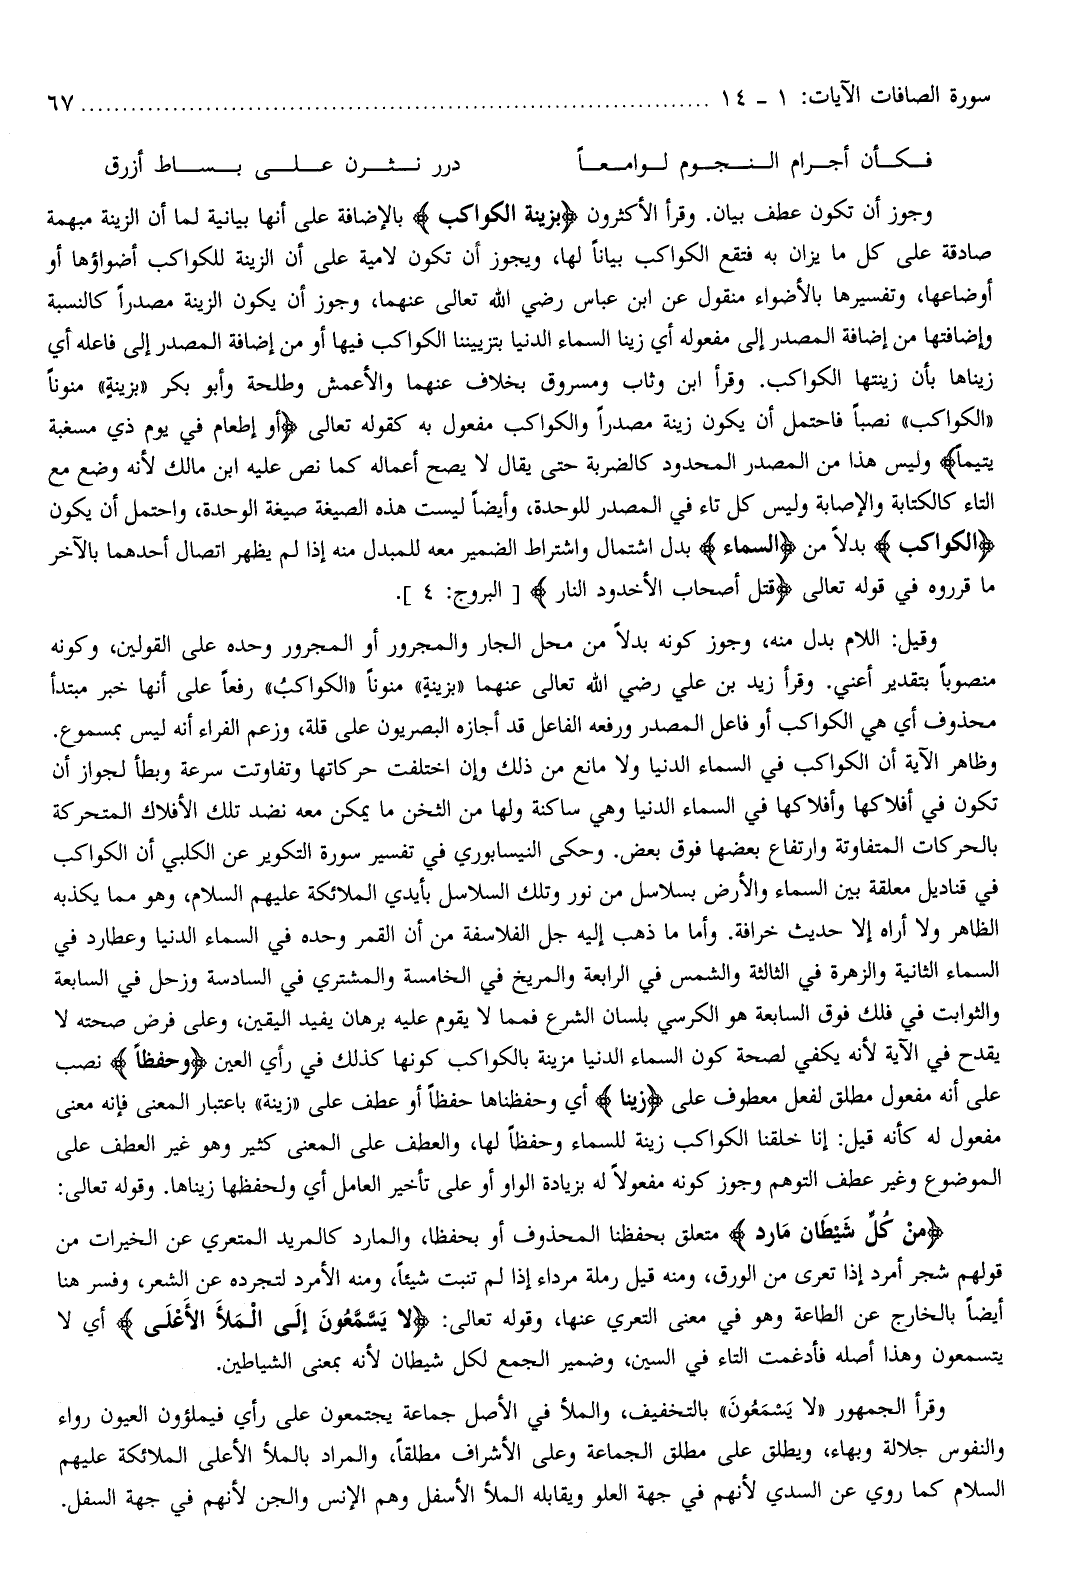 سورة الصافات الآيات: ١ - ١٤ ........................................................................ ٦٧
فـكـأن أجـرام الـنـجـوم لـوامـعـاً درر نـثـرن عـلـى بـسـاط أزرق
وجوز أن تكون عطف بيان. وقرأ الأكثرون ﴿بزينة الكواكب﴾ بالإضافة على أنها بيانية لما أن الزينة مبهمة
صادقة على كل ما يزان به فتقع الكواكب بياناً لها، ويجوز أن تكون لامية على أن الزينة للكواكب أضواؤها أو
أوضاعها، وتفسيرها بالأضواء منقول عن ابن عباس رضي الله تعالى عنهما، وجوز أن يكون الزينة مصدراً كالنسبة
وإضافتها من إضافة المصدر إلى مفعوله أي زينا السماء الدنيا بتزييننا الكواكب فيها أو من إضافة المصدر إلى فاعله أي
زيناها بأن زينتها الكواكب. وقرأ ابن وثاب ومسروق بخلاف عنهما والأعمش وطلحة وأبو بكر «بزينةٍ» منوناً
«الكواكب» نصباً فاحتمل أن يكون زينة مصدراً والكواكب مفعول به كقوله تعالى ﴿أو إطعام في يوم ذي مسغبة
يتيماً﴾ وليس هذا من المصدر المحدود كالضربة حتى يقال لا يصح أعماله كما نص عليه ابن مالك لأنه وضع مع
التاء كالكتابة والإصابة وليس كل تاء في المصدر للوحدة، وأيضاً ليست هذه الصيغة صيغة الوحدة، واحتمل أن يكون
﴿الكواكب﴾ بدلاً من ﴿السماء﴾ بدل اشتمال واشتراط الضمير معه للمبدل منه إذا لم يظهر اتصال أحدهما بالآخر
ما قرروه في قوله تعالى ﴿قتل أصحاب الأخدود النار﴾ [ البروج: ٤ ].
وقيل: اللام بدل منه، وجوز كونه بدلاً من محل الجار والمجرور أو المجرور وحده على القولين، وكونه
منصوباً بتقدير أعني. وقرأ زيد بن علي رضي الله تعالى عنهما «بزينةٍ» منوناً «الكواكبُ» رفعاً على أنها خبر مبتدأ
محذوف أي هي الكواكب أو فاعل المصدر ورفعه الفاعل قد أجازه البصريون على قلة، وزعم الفراء أنه ليس بمسموع.
وظاهر الآية أن الكواكب في السماء الدنيا ولا مانع من ذلك وإن اختلفت حركاتها وتفاوتت سرعة وبطأ لجواز أن
تكون في أفلاكها وأفلاكها في السماء الدنيا وهي ساكنة ولها من الثخن ما يمكن معه نضد تلك الأفلاك المتحركة
بالحركات المتفاوتة وارتفاع بعضها فوق بعض. وحكى النيسابوري في تفسير سورة التكوير عن الكلبي أن الكواكب
في قناديل معلقة بين السماء والأرض بسلاسل من نور وتلك السلاسل بأيدي الملائكة عليهم السلام، وهو مما يكذبه
الظاهر ولا أراه إلا حديث خرافة. وأما ما ذهب إليه جل الفلاسفة من أن القمر وحده في السماء الدنيا وعطارد في
السماء الثانية والزهرة في الثالثة والشمس في الرابعة والمريخ في الخامسة والمشتري في السادسة وزحل في السابعة
والثوابت في فلك فوق السابعة هو الكرسي بلسان الشرع فمما لا يقوم عليه برهان يفيد اليقين، وعلى فرض صحته لا
يقدح في الآية لأنه يكفي لصحة كون السماء الدنيا مزينة بالكواكب كونها كذلك في رأي العين ﴿وحفظاً﴾ نصب
على أنه مفعول مطلق لفعل معطوف على ﴿زينا﴾ أي وحفظناها حفظاً أو عطف على «زينة» باعتبار المعنى فإنه معنى
مفعول له كأنه قيل: إنا خلقنا الكواكب زينة للسماء وحفظاً لها، والعطف على المعنى كثير وهو غير العطف على
الموضوع وغير عطف التوهم وجوز كونه مفعولاً له بزيادة الواو أو على تأخير العامل أي ولحفظها زيناها. وقوله تعالى:
﴿مِنْ كُلِّ شَيْطَان مَارد﴾ متعلق بحفظنا المحذوف أو بحفظا، والمارد كالمريد المتعري عن الخيرات من
قولهم شجر أمرد إذا تعرى من الورق، ومنه قيل رملة مرداء إذا لم تنبت شيئاً، ومنه الأمرد لتجرده عن الشعر، وفسر هنا
أيضاً بالخارج عن الطاعة وهو في معنى التعري عنها، وقوله تعالى: ﴿لا يَسَّمَّعُونَ إِلَى الْمَلأَ الأَعْلَى﴾ أي لا
يتسمعون وهذا أصله فأدغمت التاء في السين، وضمير الجمع لكل شيطان لأنه بمعنى الشياطين.
وقرأ الجمهور «لا يَسْمَعُونَ» بالتخفيف، والملأ في الأصل جماعة يجتمعون على رأي فيملؤون العيون رواء
والنفوس جلالة وبهاء، ويطلق على مطلق الجماعة وعلى الأشراف مطلقاً، والمراد بالملأ الأعلى الملائكة عليهم
السلام كما روي عن السدي لأنهم في جهة العلو ويقابله الملأ الأسفل وهم الإنس والجن لأنهم في جهة السفل.